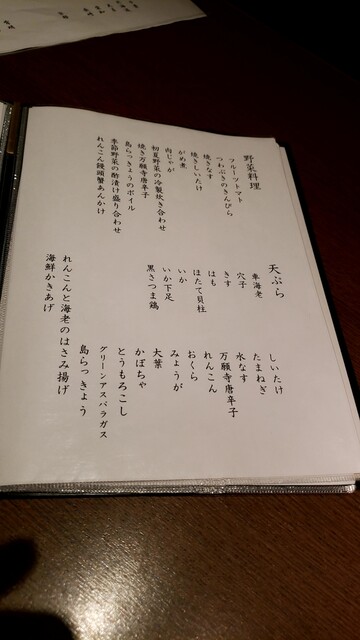 野菜料理
フルーツトマト
つわぶきのきんぴら
焼きなす
焼きしいたけ
がめ煮
肉じゃが
初夏野菜の冷製炊き合わせ
焼き万願寺唐辛子
島らっきょうのボイル
季節野菜の酢漬け盛り合わせ
れんこん饅頭蟹あんかけ
天ぷら
車海老
穴子
きす
はも
ほたて貝柱
いか
いか下足
黒さつま鶏
しいたけ
たまねぎ
水なす
万願寺唐辛子
れんこん
おくら
みょうが
大葉
かぼちゃ
とうもろこし
グリーンアスパラガス
島らっきょう
れんこんと海老のはさみ揚げ
海鮮かきあげ